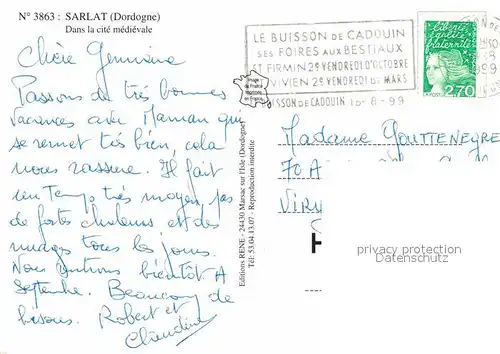 N° 3863 : SARLAT (Dordogne)
Dans la cité médiévale
Chère Germaine
Passons de très bonnes
vacances avec Maman qui
se remet très bien, cela
nous rassure. Il fait
un Temps très moyen, pas
de fortes chaleurs et des
nuages tous les jours.
Nous rentrons bientôt. A
Septembre. Beaucoup de
bisous. Robert et
Claudine
Editions RENE - 24430 Marsac sur l'Isle (Dordogne)
Tél: 53.04.13.07 - Reproduction interdite
LE BUISSON DE CADOUIN
SES FOIRES AUX BESTIAUX
ST FIRMIN 2e VENDREDI D'OCTOBRE
VIVIEN 2e VENDREDI DE MARS
BUISSON DE CADOUIN 18-8-99
liberté
égalité
fraternité
2,70
Madame GOUTTENEYRE
70 A
VIRY
privacy protection
Datenschutz